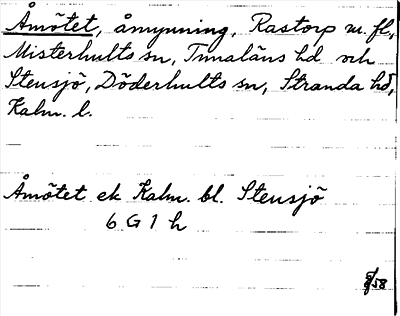 Åmötet, åmynning, Rastorp m. fl.,
Misterhults sn, Tunaläns hd och
Stensjö, Döderhults sn, Stranda hd,
Kalm. l.
Åmötet ek Kalm. bl. Stensjö
6 G 1 h